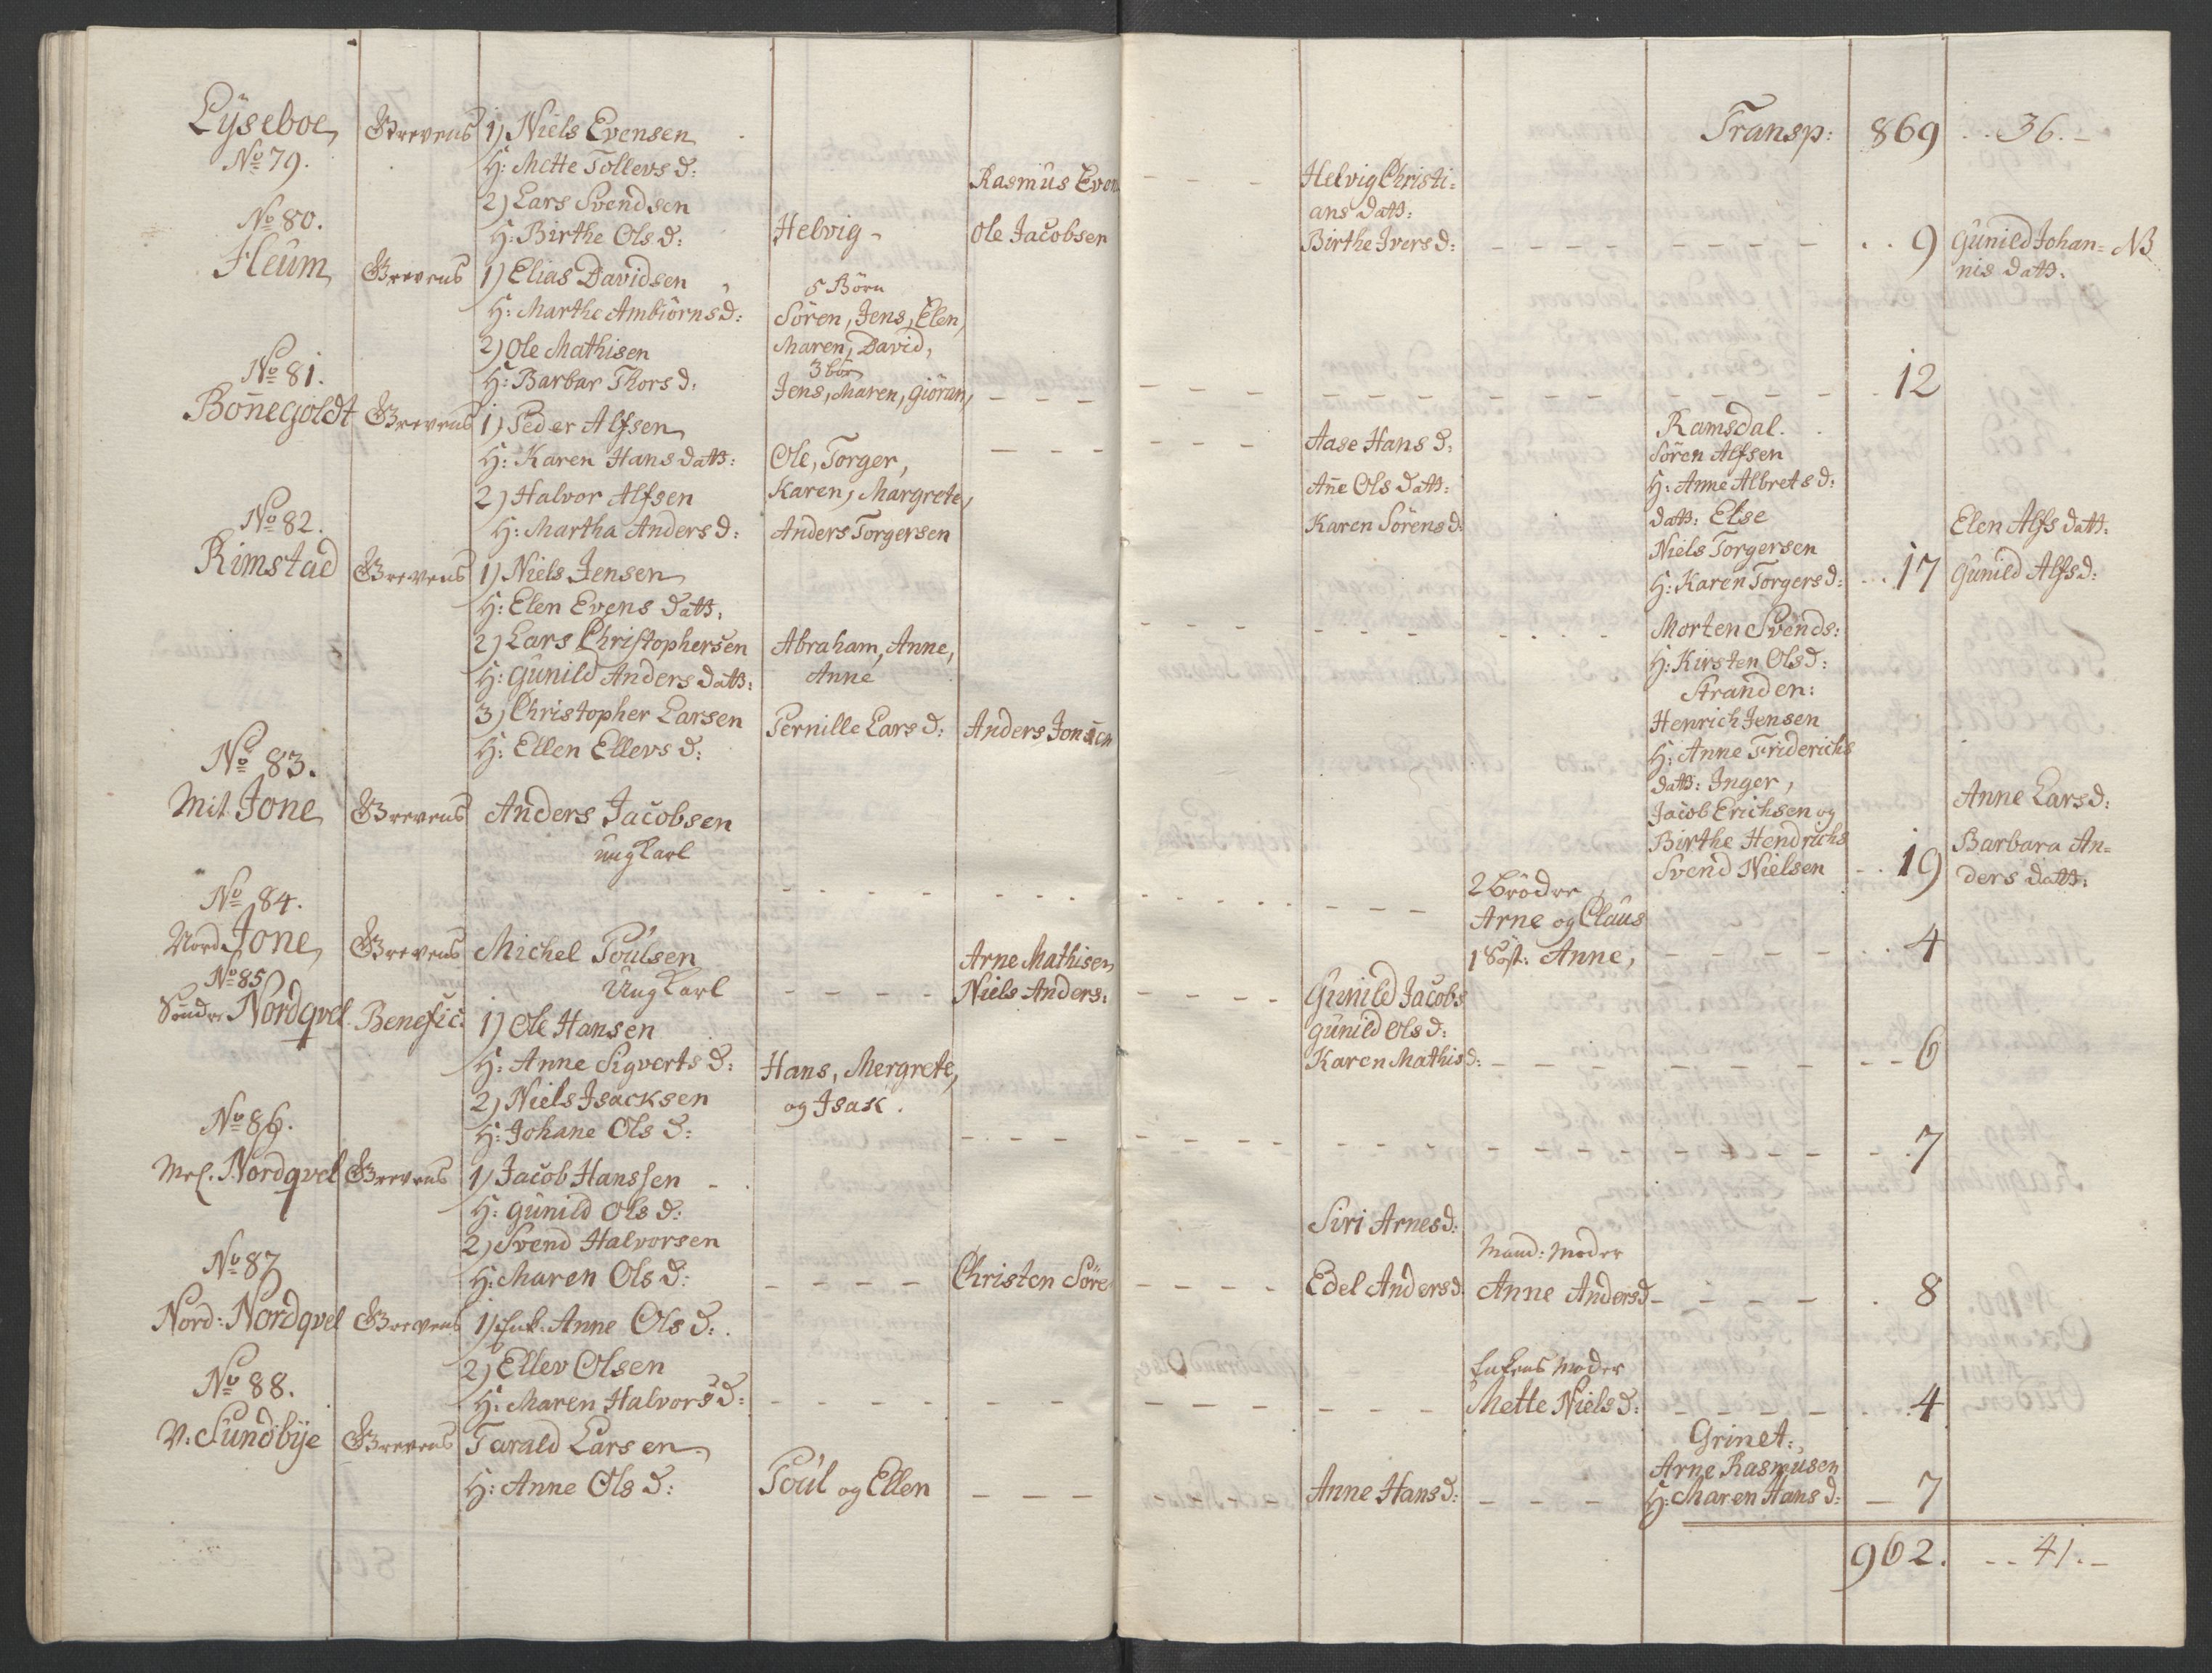 Transp: 869 .. 36.-
Lÿseboe Grevens 1) Niels Evensen
No 79.
H: Mette Tollevs d:
Rasmus Even - - - Helvig Christi=
2) Lars Svendsen
ans datt:
No 80.
H: Birthe Ols d: Helvig - Ole Jacobsen Birthe Ivers d: - - - - - - - - - .. 9 Gunild Johan= NB
nis datt.
Heum Grevens 1) Elias Davidsen 5 Börn
H: Marthe Ambiörns d: Sören, Jens, Elen,
2) Ole Mathisen Maren, David,
3 bör
No 81.
H: Barbar Thors d. Jens, Maren, Giöran, - - - - - - - - - - - - - - 12
Bon̄egoldt Grevens 1) Peder Alfsen Ramsdal.
H: Karen Hans datt: Ole, Torger, - - - - - - Aase Hans d: Sören Alfsen
2) Halvor Alfsen Karen, Margrete, An̄e Ols datt: H: Anne Albrets d:
No 82.
H: Martha Anders d: Anders Torgersen Karen Sörens d: datt: Else Elen Alfs datt:
Niels Torgersen
Rimstad Grevens 1) Niels Jensen H: Karen Torgers d: ... 17 Gunild Alfs d:
H: Elen Evens datt.
2) Lars Christophersen Abraham, Anne, - - - - - - - - - - Morten Svends:
H: Gunild Anders datt: Anne H: Kirsten Ols d:
Stranden:
3) Christopher Larsen Pernille Lars d: Anders Jonsen Henrich Jensen
H: Ellen Ellevs d: H: Anne Friderichs
No 83.
datt: Inger,
Mit Jone Grevens Anders Jacobsen Jacob Erichsen og Anne Lars d:
ung Karl Birthe Hendrichs Barbara An=
Svend Nielsen .. 19 ders datt.
No 84.
- - - - - - - - - - - - 2 brödre
Arne og Claus
Nord Jone Grevens Michel Poulsen Arne Mathisen 1 Söst: Anne, - - - - - .. 4
No 85
Ung Karl - - - - Niels Anders: - - - - Gunild Jacobs
Söndre Nordqvel Benefic: 1) Ole Hansen Gunild Ols d:
H: Anne Sigverts d: Hans, Mergrete, Karen Mathis d: - - - - - - - - 6
2) Niels Isacksen og Isak.
No 86.
H: Johane Ols d: - - - - - - - - - - - - - - - - - - 7
Mel. Nordqvel Grevens 1) Jacob Hanssen -
H: Gunild Ols d:
Siri Arnes d:
2) Svend Halvorsen Mand: Moder
No 87
H: Maren Ols d: - - - - Christen Söre - - - - Edel Anders d. Anne Anders d - - - - - . 8
Nord: Nordqvel Grevens 1) Enk: Anne Ols d:
2) Ellev Olsen Enkens Moder
No 88.
H: Maren Halvors d: - - - - - - - - - - - - - Mette Niels d: - - - - - . 4
V: Sundbÿe Grevens Tarald Larsen Grinet:
Arne Rasmusen
H: Anne Ols d: Poul og Ellen - - - - - - - Anne Hans d: - - - H: Maren Hans d: - 7
962. -- 41.-